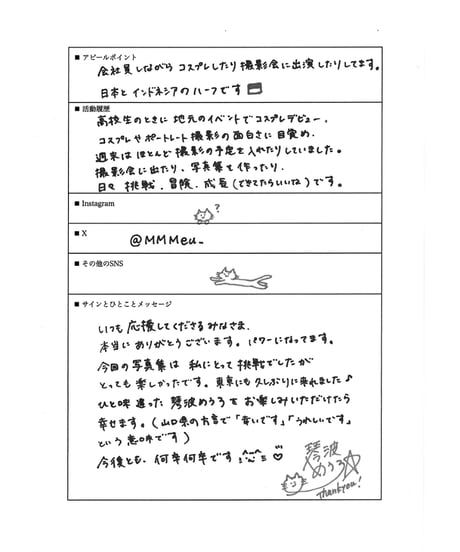 ■ アピールポイント
会社員しながら コスプレしたり撮影会に出演したりしてます。
日本とインドネシアのハーフです
■ 活動履歴
高校生のときに 地元のイベントでコスプレデビュー.
コスプレやポートレート撮影の面白さに目覚め.
週末は ほとんど撮影の予定を入れたりしていました。
撮影会に出たり、写真集を作ったり.
日々 挑戦. 冒険. 成長(できてたらいいね)です。
■ Instagram
?
■ X
@MMMeu_
■ その他のSNS
■ サインとひとことメッセージ
いつも応援してくださるみなさま.
本当に ありがとうございます。パワーになってます。
今回の写真集は 私にとって挑戦でしたが
とっても楽しかったです。東京にも久しぶりに来れました♪
ひと味違った 琴波めうろをお楽しみいただけたら
幸せます。(山口県の方言で「幸いです」「うれしいです」
という意味です)
今後とも、何卒何卒です
琴波
めうろ
Thankyou!